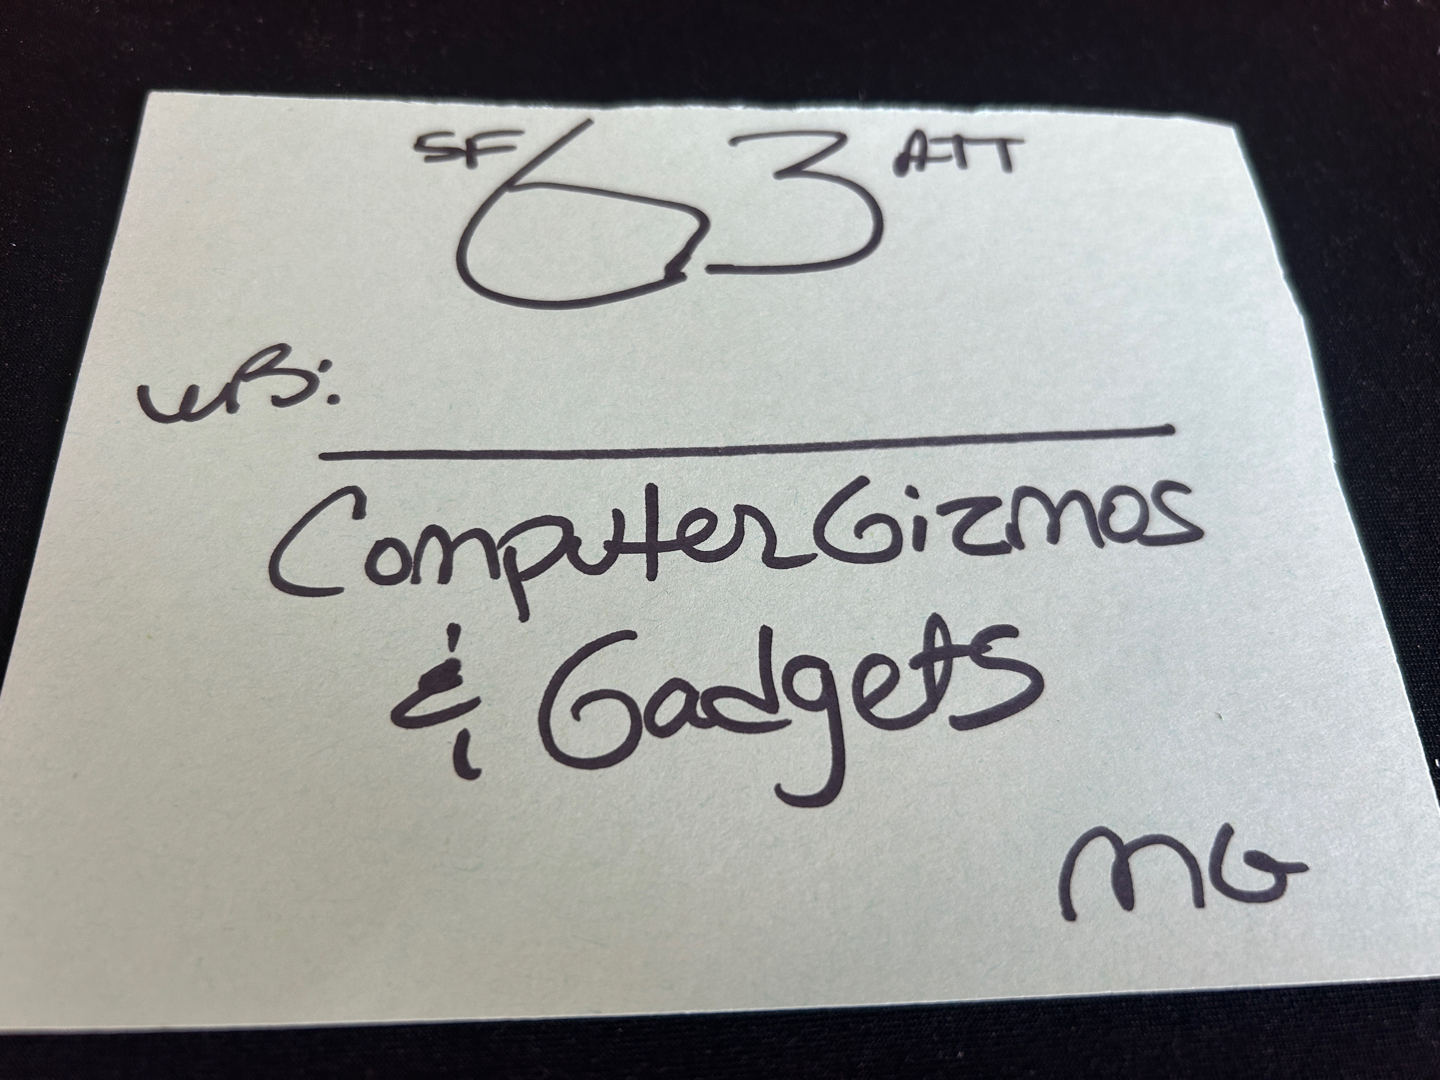 SF 63 ATT
WB:
Computer Gizmos
& Gadgets
MG